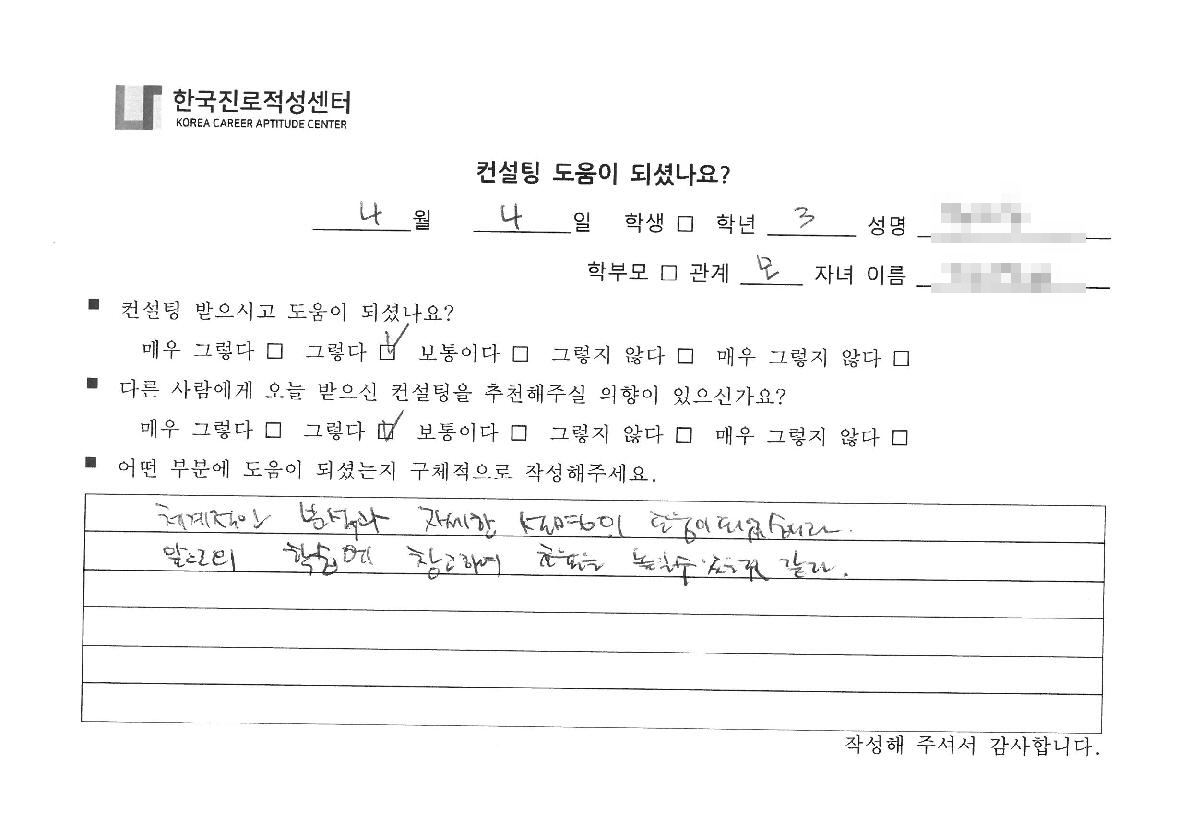 한국진로적성센터
KOREA CAREER APTITUDE CENTER
컨설팅 도움이 되셨나요?
4월 4일 학생 □ 학년 3 성명
학부모 □ 관계 모 자녀 이름
■ 컨설팅 받으시고 도움이 되셨나요?
매우 그렇다 □ 그렇다 ☑ 보통이다 □ 그렇지 않다 □ 매우 그렇지 않다 □
■ 다른 사람에게 오늘 받으신 컨설팅을 추천해주실 의향이 있으신가요?
매우 그렇다 □ 그렇다 ☑ 보통이다 □ 그렇지 않다 □ 매우 그렇지 않다 □
■ 어떤 부분에 도움이 되셨는지 구체적으로 작성해주세요.
체계적인 분석과 자세한 설명이 도움이 되었습니다.
앞으로의 학습에 참고하여 효율을 높일수 있을것 같다.
작성해 주셔서 감사합니다.